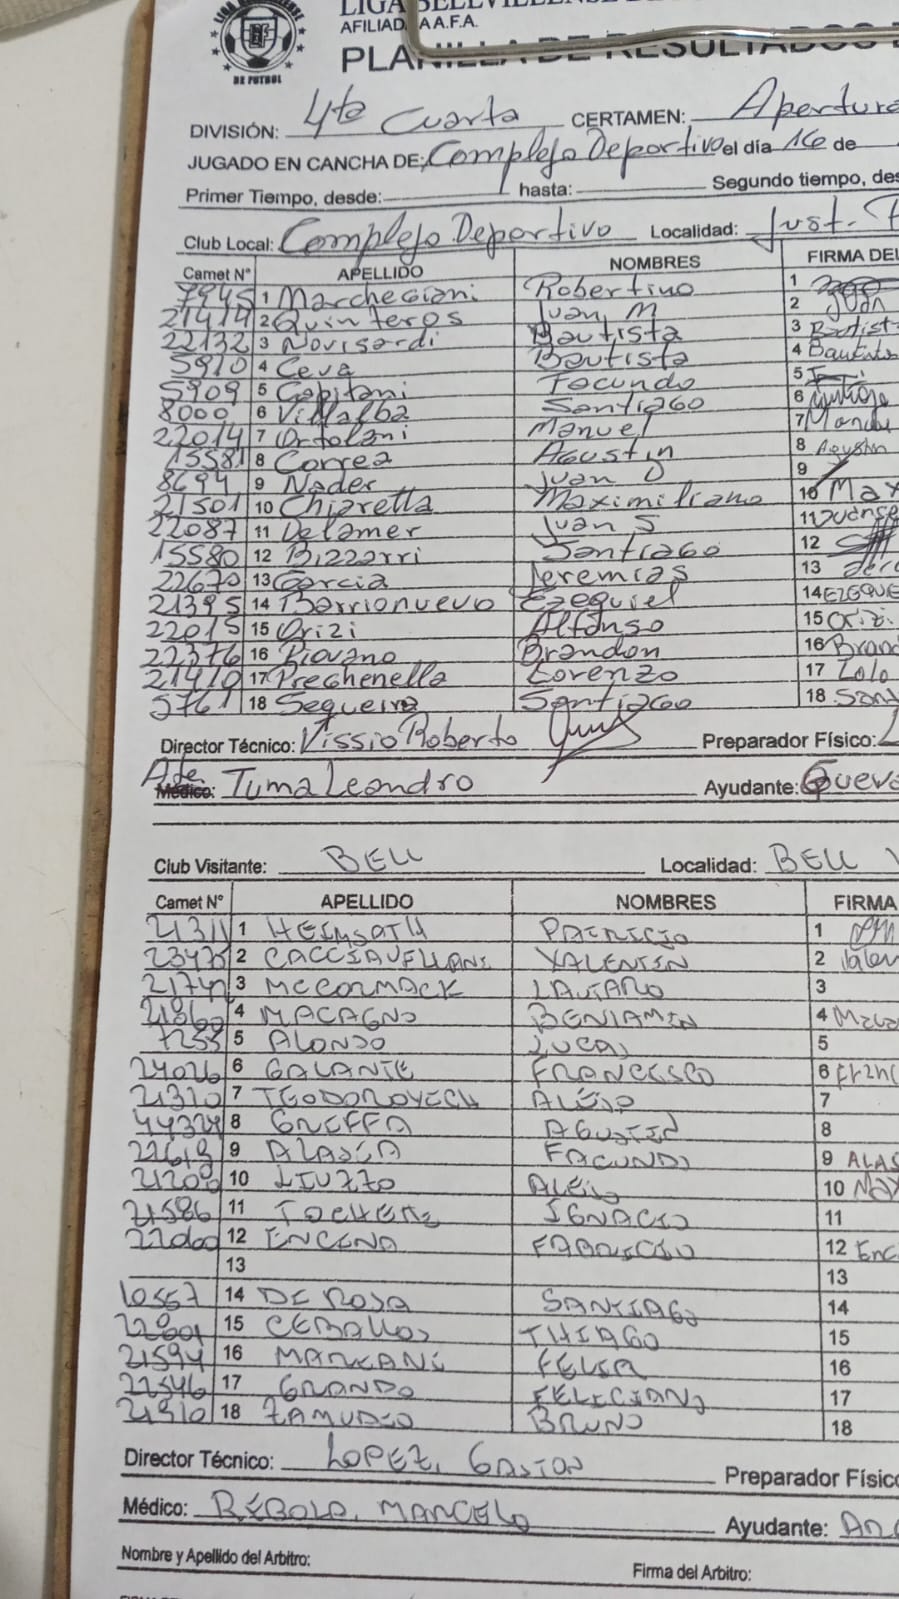 LIGA BELLVILLENSE DE
AFILIADA A A.F.A.
DE FUTBOL
PLANILLA DE RESULTADOS
DIVISIÓN: 4ta Cuarta CERTAMEN: Apertura
JUGADO EN CANCHA DE: Complejo Deportivo el día 16 de
Primer Tiempo, desde: hasta: Segundo tiempo, des
Club Local: Complejo Deportivo Localidad: Just. P
Carnet N° APELLIDO NOMBRES FIRMA DEL
7945 1 Marchegiani Robertino 1
21414 2 Quinteros Juan M 2 Juan
22132 3 Novisardi Bautista 3 Bautist
5910 4 Ceva Bautista 4 Bautista
5909 5 Capitani Facundo 5
8000 6 Villalba Santiago 6
22014 7 Ortolani Manuel 7 Manue
15581 8 Correa Agustin 8 Agustin
8694 9 Nader Juan 9
21501 10 Chiaretta Maximiliano 10 Max
22087 11 Delamer Juan S 11
15580 12 Bizzarri Santiago 12
22670 13 Garcia Jeremias 13
21395 14 Barrionuevo Ezequiel 14 EZEQUIE
22015 15 Orizi Alfonso 15 Orizi
22376 16 Piovano Brandon 16 Brand
21410 17 Preghenella Lorenzo 17 Lolo
5761 18 Segueira Santiago 18 Sant
Director Técnico: Vissio Roberto Preparador Físico:
Ate.
Médico: Tuma Leandro Ayudante: Gueva
Club Visitante: BELL Localidad: BELL V
Carnet N° APELLIDO NOMBRES FIRMA
21311 1 HEIMSATH PATRICIO 1
23475 2 CACCIAVELLANI VALENTIN 2 Valen
21741 3 MCCORMACK LAUTARO 3
21860 4 MACAGNO BENJAMIN 4 Maca
7255 5 ALONSO LUCAS 5
24026 6 GALANTE FRANCESCO 6 Franc
21320 7 TEODOROVICH ALEJO 7
44324 8 GREFFA AGUSTIN 8
22619 9 ALASIA FACUNDO 9 ALAS
21208 10 LIUZZO ALEJO 10
21586 11 IGNACIO 11
22060 12 ENCINA FABRICIO 12 Enc
13 13
10557 14 DE ROSA SANTIAGO 14
22801 15 CEBALLOS THIAGO 15
21594 16 MARCANI 16
22546 17 GRANDO FELICIANO 17
21910 18 ZAMUDIO BRUNO 18
Director Técnico: LOPEZ, GASTON Preparador Físico
Médico: REBOLA, MARCELO Ayudante:
Nombre y Apellido del Arbitro: Firma del Arbitro: